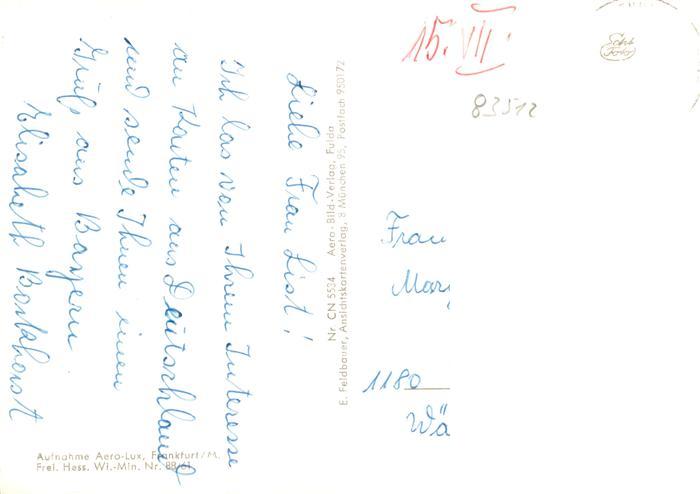 Liebe Frau List!
Ich las von Ihrem Interesse
an Karten aus Deutschland
und sende Ihnen einen
Gruß aus Bayern
Elisabeth
Nr CN 5534 Aero-Bild-Verlag, Fulda
E. Feldbauer, Ansichtskartenverlag, 8 München 95, Postfach 950172
Aufnahme Aero-Lux, Frankfurt/M.
Frei. Hess. Wi.-Min. Nr. 88/61
15. VII.
83512
Frau
1180
Wä